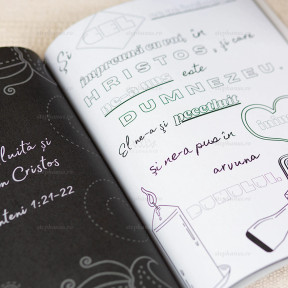 luită și
n Cristos
nteni 1:21-22
CEL
Și
împreună cu voi, în
HRISTOS, și care
este
DUMNEZEU.
El ne-a și pecetluit
și ne-a pus în
arvuna
DUHULUI.